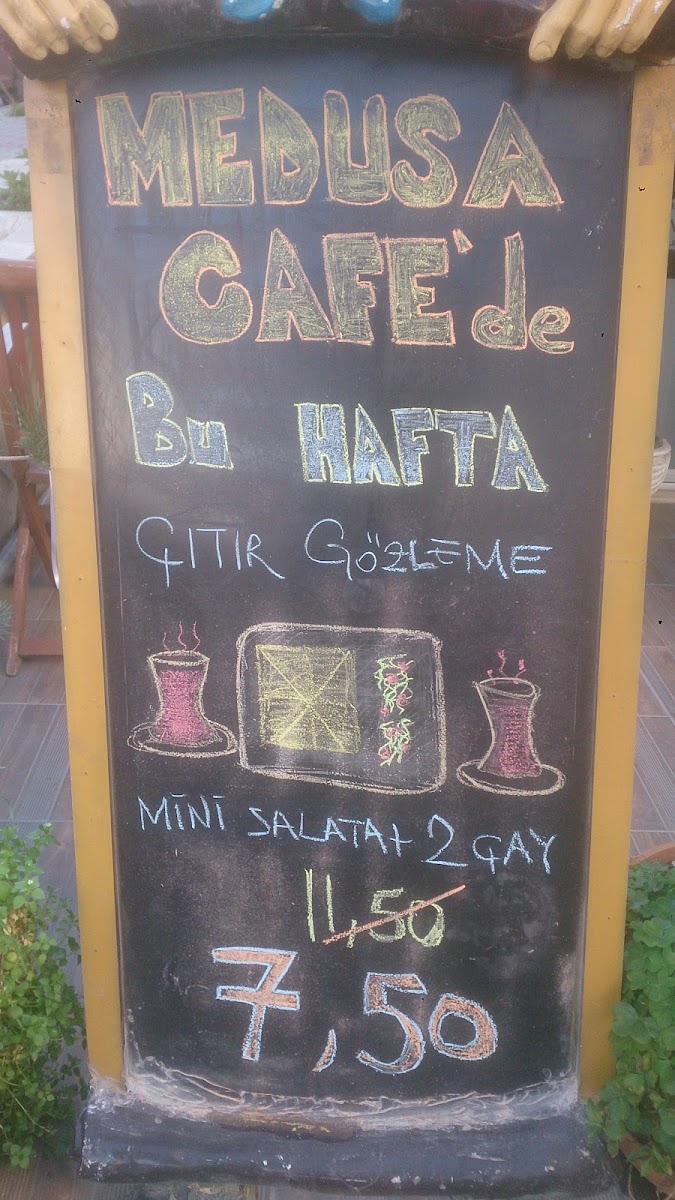 MEDUSA
CAFE'de
Bu HAFTA
ÇITIR GÖZLEME
MİNİ SALATA+ 2 ÇAY
11,50
7,50